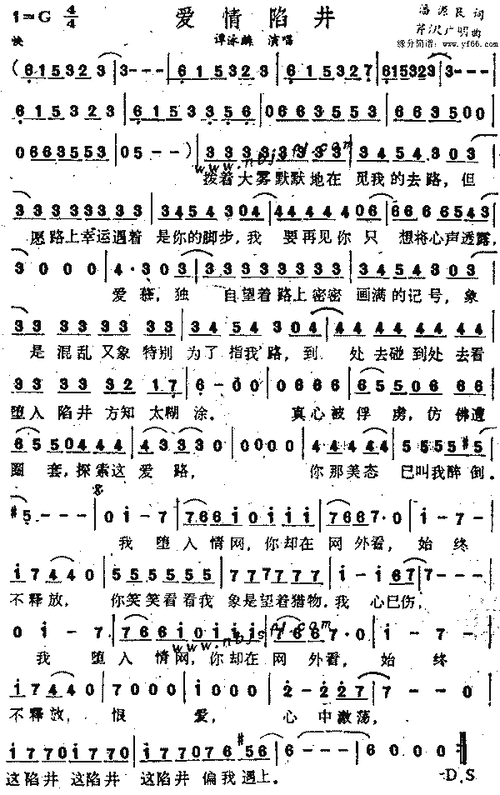 1=G 4/4 爱情陷井 潘源良 词
芹沢广明曲
快 谭泳麟 演唱 缘分简谱:www.yf66.com
(6 1 5 3 2 3 | 3 - - - | 6 1 5 3 2 3 | 6 1 5 3 2 7 | 6 1 5 3 2 3 | 3 - - - |
6 1 5 3 2 3 | 6 1 5 3 5 6 | 0 6 6 3 5 5 3 | 6 6 3 5 0 0 |
0 6 6 3 5 5 3 | 0 5 - - ) | 3 3 3 3 3 3 3 3 | 3 4 5 4 3 0 3 |
拨着大雾默默地在 见我的去路,但
3 3 3 3 3 3 3 3 | 3 4 5 4 3 0 4 | 4 4 4 4 4 0 6 | 6 6 6 6 5 4 |
愿路上幸运遇着 是你的脚步,我 要再见你只 想将心声透露,
3 0 0 0 | 4 · 3 0 3 | 3 3 3 3 3 3 3 3 | 3 4 5 4 3 0 3 |
爱慕,独 自望着路上密密 画满的记号,象
3 3 3 3 3 3 3 3 | 3 4 5 4 3 0 4 | 4 4 4 4 4 4 4 4 |
是 混乱又象 特别 为了指我路,到 处去碰到处去看
3 3 3 3 3 2 1 7 | 6 - 0 0 | 0 6 6 6 | 6 5 5 0 6 6 6 |
堕入 陷井 方知 太糊 涂。 真心被俘 虏,仿佛遭
6 5 5 0 4 4 4 | 4 3 3 3 0 | 0 0 0 0 | 4 4 4 4 4 | 5 5 5 5 #5 |
圈 套,探索这 爱路, 你那美态 已叫我醉倒。
#5 - - - | 0 1 - 7 | 7 6 6 1 0 1 1 1 | 7 6 6 7 · 0 | 1 - 7 - |
我 堕入情网,你却在网外看,始终
1 7 4 4 0 | 5 5 5 5 5 5 | 7 7 7 7 7 7 | 1 - 1 6 7 | 7 - - - |
不释放, 你笑笑看看我 象是望着猎物,我 心已伤,
0 1 - 7 | 7 6 6 1 0 1 1 1 | 7 6 6 7 · 0 | 1 - 7 - |
www.nbjsnl.com
我 堕入 情网,你却在网 外看, 始终
1 7 4 4 0 | 7 0 0 0 | 1 0 0 0 | 2 - 2 2 7 | 7 - - 0 |
不释放, 恨 爱, 心中激荡,
1 7 7 0 1 7 7 0 | 1 7 7 0 7 6 #5 6 | 6 - - - | 6 0 0 0 :‖
这陷井 这陷井 这陷井 偏我遇上。 D.S